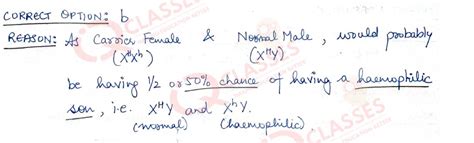 CORRECT OPTION: b
REASON: As Carrier Female & Normal Male, would probably
(XᴴXʰ) (XᴴY)
be having 1/2 or 50% chance of having a haemophilic
son, i.e. XᴴY and XʰY.
(normal) (haemophilic)
CLASSES
CLASSES
CLASSES